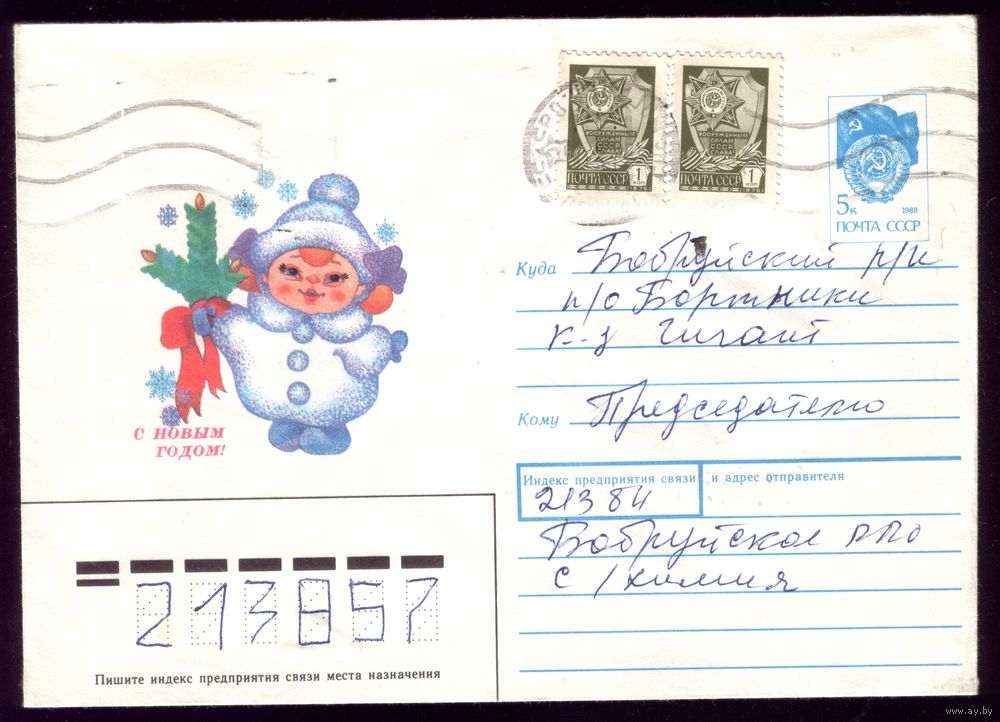 ВООРУЖЕННЫМ
СИЛАМ
СССР
СЛАВА!
ПОЧТА СССР 1 КОП
1976
ВООРУЖЕННЫМ
СИЛАМ
СССР
СЛАВА!
ПОЧТА СССР 1 КОП
1976
5к 1988
ПОЧТА СССР
С НОВЫМ
ГОДОМ!
Куда Бобруйский р/н
п/о Бортники
к-з Гигант
Кому Председателю
Индекс предприятия связи и адрес отправителя
Бобруйское РПО
с/химия
213857
Пишите индекс предприятия связи места назначения
www.ay.by